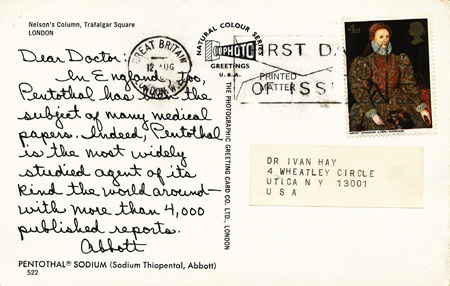 Nelson's Column, Trafalgar Square
LONDON
Dear Doctor:
In England, too,
Pentothal has been the
subject of many medical
papers. Indeed, Pentothal
is the most widely
studied agent of its
kind the world around—
with more than 4,000
published reports.
Abbott
PENTOTHAL® SODIUM (Sodium Thiopental, Abbott)
522
NATURAL COLOUR SERIES
PHOTO
GREETINGS
U.S.A.
THE PHOTOGRAPHIC GREETING CARD CO., LTD., LONDON
GREAT BRITAIN
12 AUG
LONDON
FIRST DA
PRINTED
MATTER
CLASSI
4d
DR IVAN HAY
4 WHEATLEY CIRCLE
UTICA N Y 13001
U S A